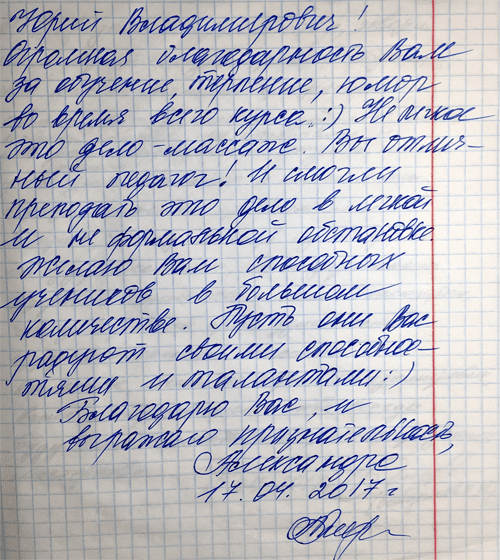 Юрий Владимирович!
Огромная благодарность Вам
за обучение, терпение, юмор
во время всего курса :) Не легкое
это дело – массаж. Вы отлич-
ный педагог! И смогли
преподать это дело в легкой
и не формальной обстановке.
Желаю Вам способных
учеников в большом
количестве. Пусть они Вас
радуют своими способнос-
тями и талантами :)
Благодарю Вас, и
выражаю признательность,
Александра
17.04.2017 г